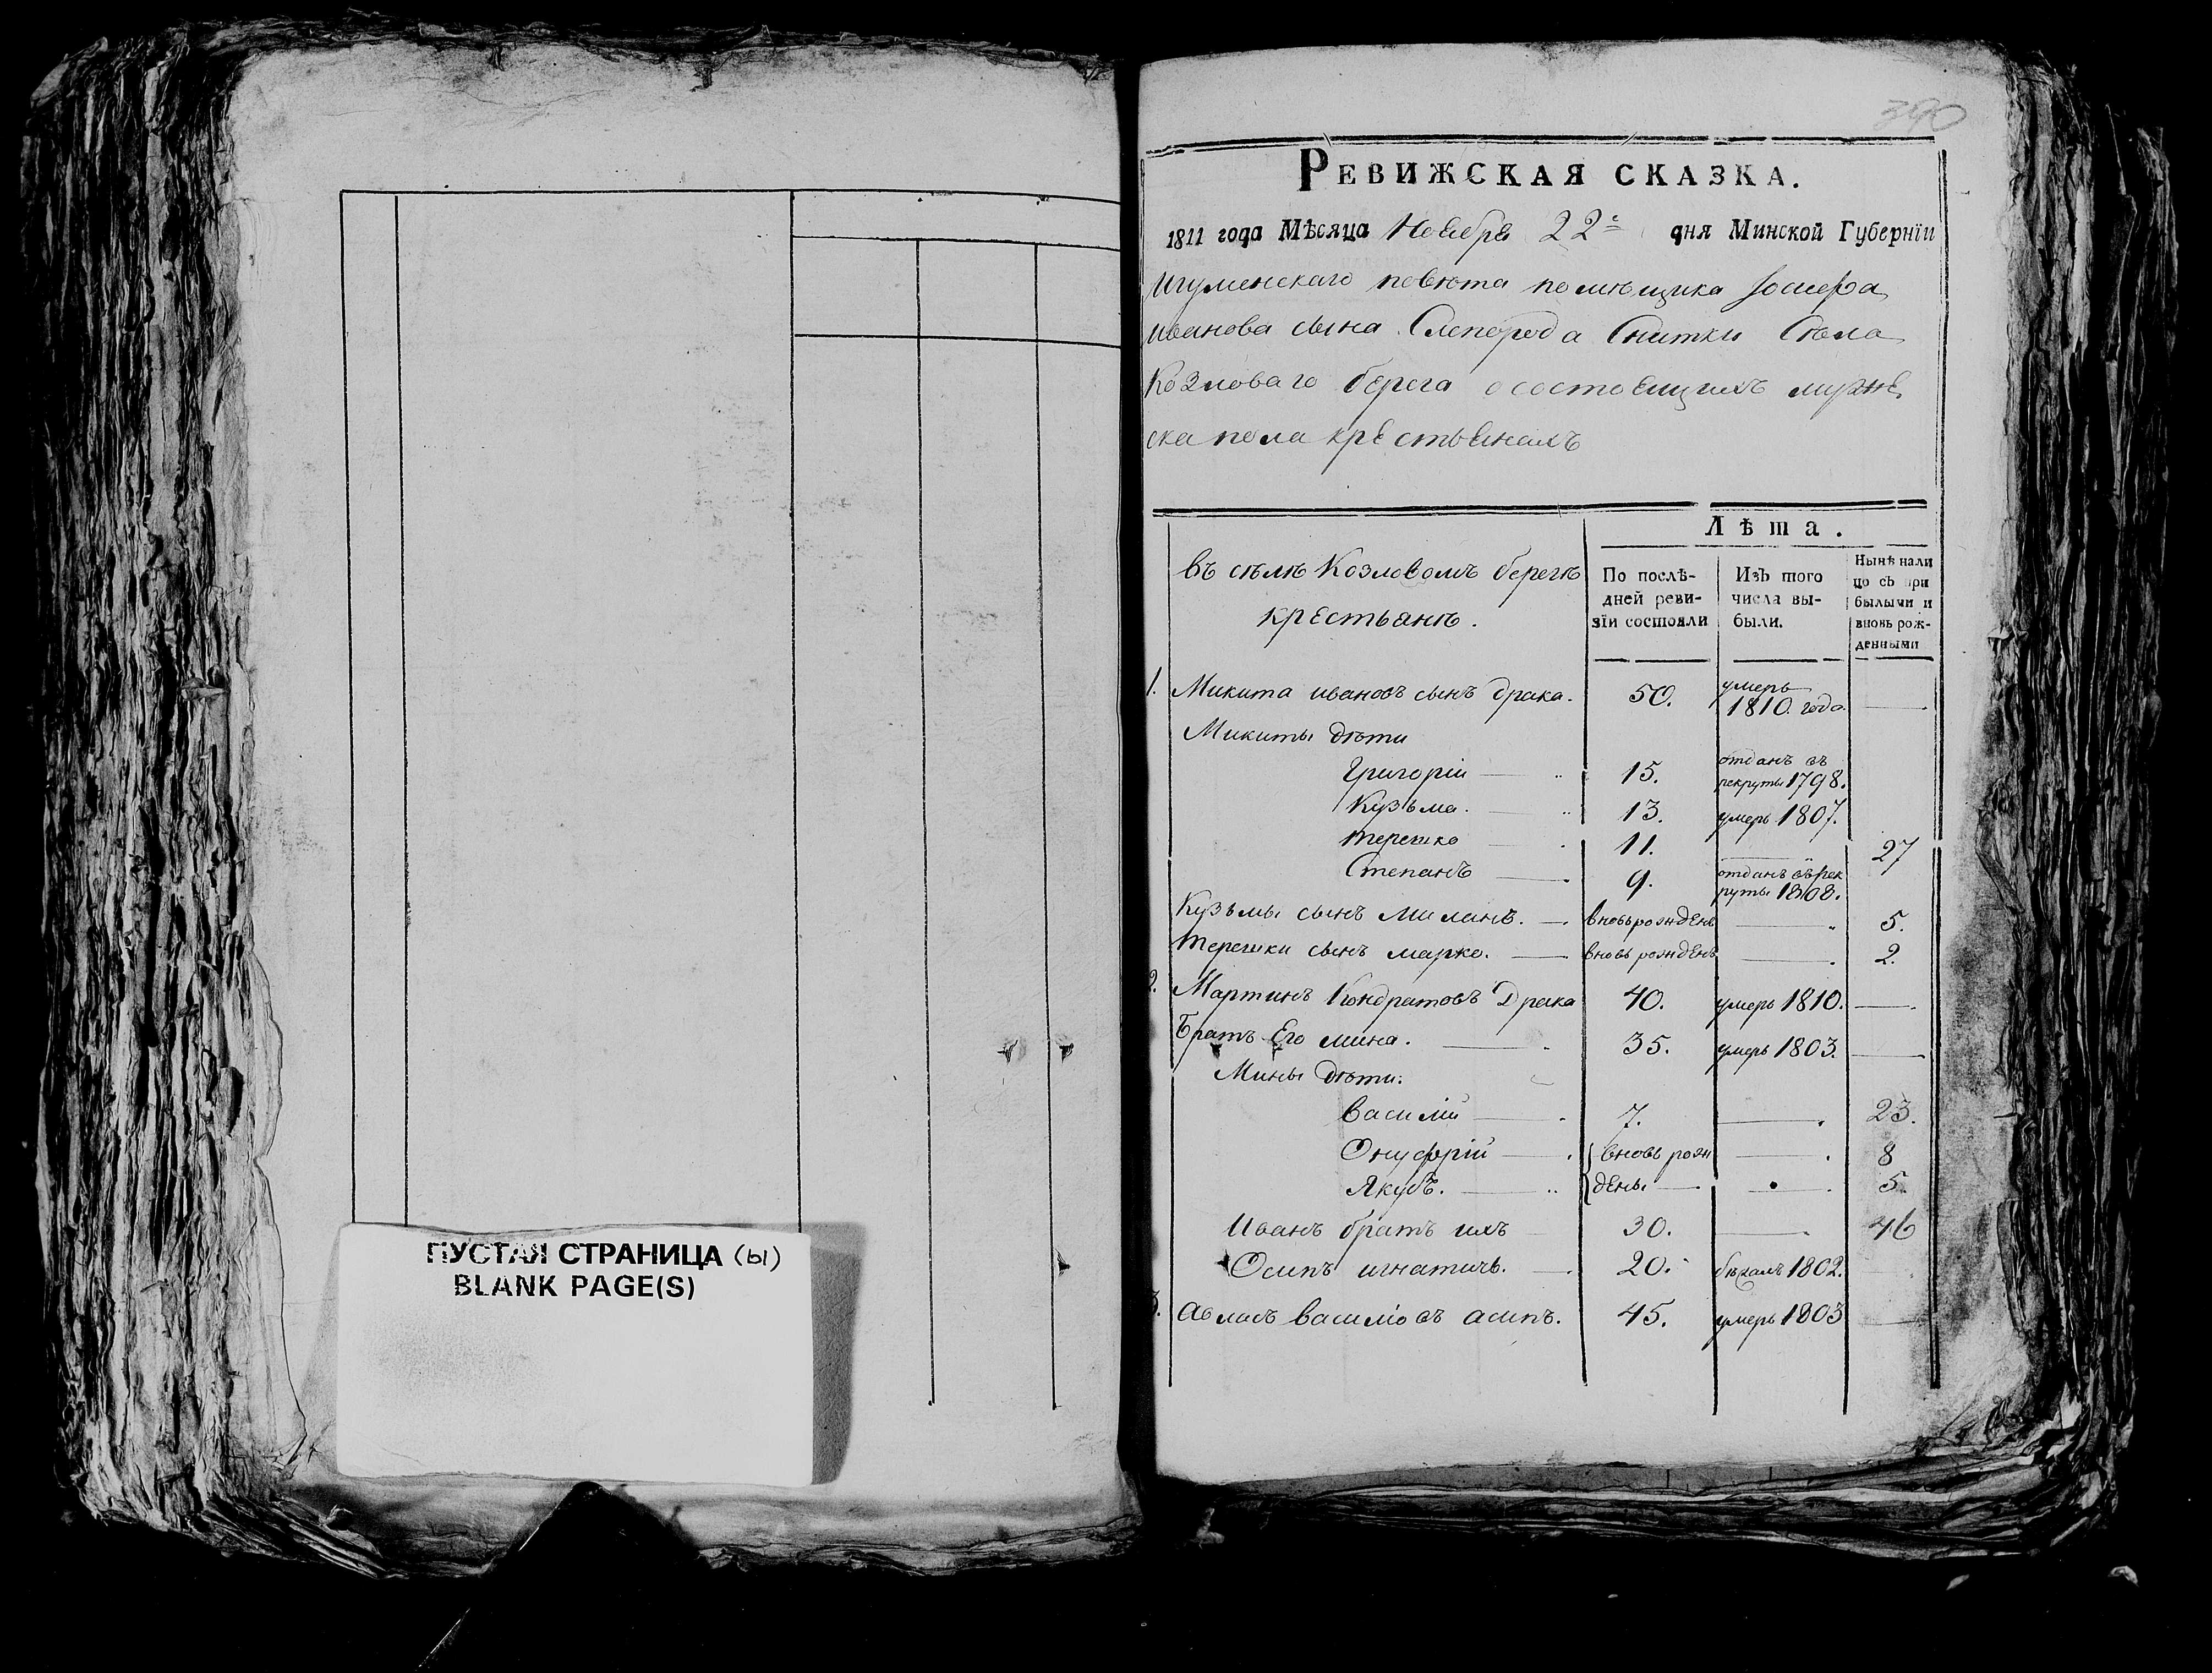 ПУСТАЯ СТРАНИЦА (ы)
BLANK PAGE(S)
390
РЕВИЖСКАЯ СКАЗКА.
1811 года Мѣсяца Ноебря 22º дня Минской Губернїи
Игуменскаго повѣта помѣщика Іосифа
Иванова сына Снитки Сѣла
Козловаго берега о состоещихъ мужес
ска пола крестьенахъ
Лѣта.
въ сѣлѣ Козловомъ берегѣ
крестьянъ.
По послѣ-
дней реви-
зїи состояли
Изъ того
числа вы-
были.
Нынѣ нали
цо съ при
былыми и
вновь рож-
денными
1. Микита ивановъ сынъ драка. 50. умеръ 1810. года
Микиты дѣти
Григорій 15. отданъ въ рекруты 1798.
Кузьма. 13. умеръ 1807.
Терешко 11. 27
Степанъ 9. отданъ въ рек руты 1808.
Кузьмы сынъ Миланъ. вновьрожденъ 5.
Терешки сынъ марко. вновь рожденъ 2.
2. Мартинъ Кондратовъ Драка 40. умеръ 1810.
Братъ Его мина. 35. умеръ 1803.
Мины дѣти:
Василій 7. 23.
Онуфрій вновь рож 8
Якубъ. дены 5.
Иванъ братъ ихъ 30. 46
Осипъ игнатичь. 20. бѣжалъ 1802.
3. Авласъ василіовъ асипъ. 45. умеръ 1803